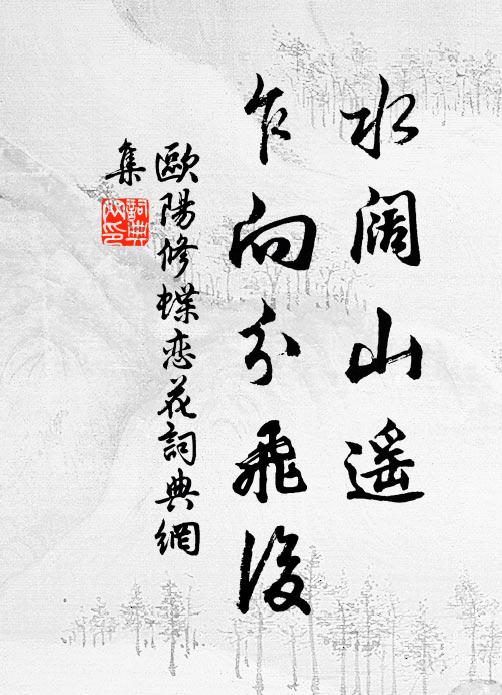 水阔山遥
乍向分飛後
歐陽修蝶恋花詞典網
集
詞典網印